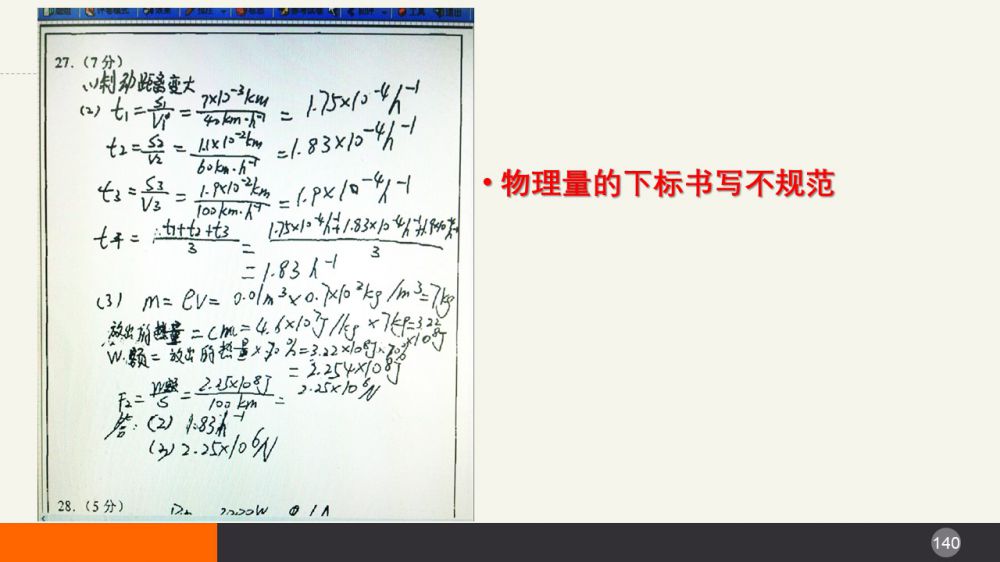 27. (7分)
(1)制动距离变大
(2) t₁=S₁/V₁=7×10⁻³km/40km·h⁻¹=1.75×10⁻⁴h⁻¹
t₂=S₂/V₂=1.1×10⁻²km/60km·h⁻¹=1.83×10⁻⁴h⁻¹
t₃=S₃/V₃=1.9×10⁻²km/100km·h⁻¹=1.9×10⁻⁴h⁻¹
t平=t₁+t₂+t₃/3=1.75×10⁻⁴h⁻¹+1.83×10⁻⁴h⁻¹+1.9×10⁻⁴h⁻¹/3
=1.83h⁻¹
(3) m=ρV=0.01m³×0.7×10²kg/m³=7kg
放出的热量=cm=4.6×10⁷J/kg×7kg=3.22×10⁸J
W额=放出的热量×70%=3.22×10⁸J×70%
=2.254×10⁸J
F₂=W额/S=2.25×10⁸J/100km=2.25×10⁶N
答:(2) 1.83h⁻¹
(3) 2.25×10⁶N
28. (5分)
• 物理量的下标书写不规范
140